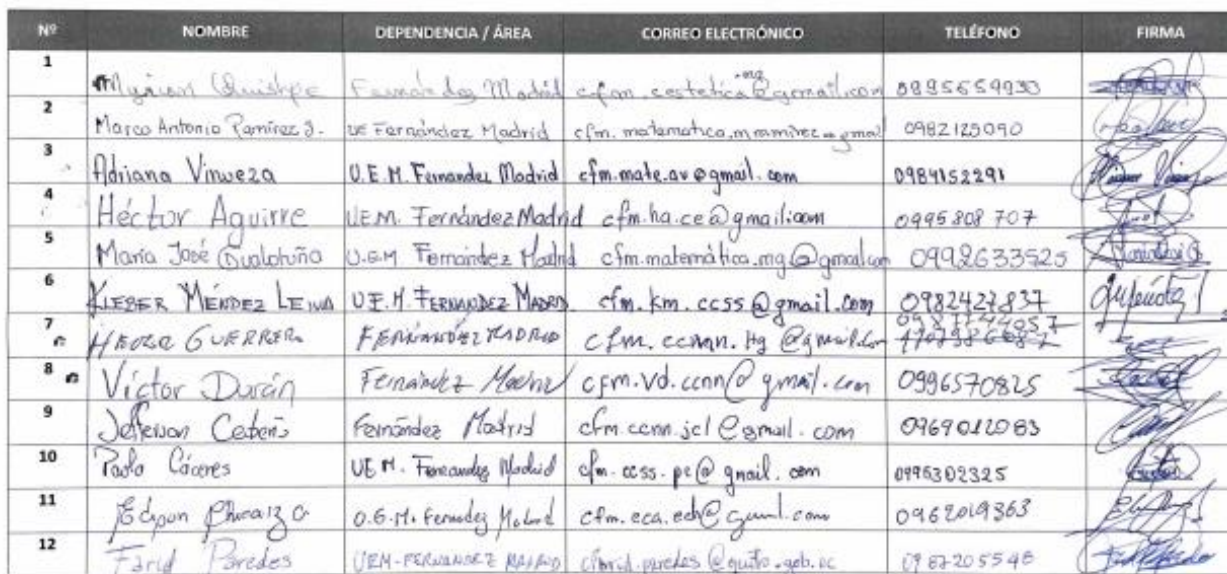 Nº NOMBRE DEPENDENCIA / ÁREA CORREO ELECTRÓNICO TELÉFONO FIRMA
1 Myriam Quishpe Fernández Madrid cfm.eestetica.mq@gmail.com 0995659930
2 Marco Antonio Ramírez J. UE Fernández Madrid cfm.matematica.m.ramirez@gmail 0982125090
3 Adriana Vinueza U.E.M. Fernandez Madrid cfm.mate.av@gmail.com 0984152291
4 Héctor Aguirre UEM. Fernández Madrid cfm.ha.ce@gmail.com 0995808707
5 María José Gualotuña U.E.M Fernández Madrid cfm.matemática.mg@gmail.com 0992633525
6 KLEBER MÉNDEZ LEIVA U.E.M. FERNANDEZ MADRID cfm.km.ccss@gmail.com 0982427837
7 GUERRERO FERNÁNDEZ MADRID cfm.ccnn.Hg@gmail.com
8 Víctor Durán Fernández Madrid cfm.vd.ccnn@gmail.com 0996570825
9 Jefferson Cedeño Fernández Madrid cfm.ccnn.jcl@gmail.com 0969012083
10 Paola Cáceres UEM. Fernandez Madrid cfm.ccss.pc@gmail.com 0995302325
11 Edison U.E.M. Fernandez Madrid cfm.eca.ech@gmail.com 0962019363
12 Farid Paredes UEM-FERNANDEZ MADRID 0987205546